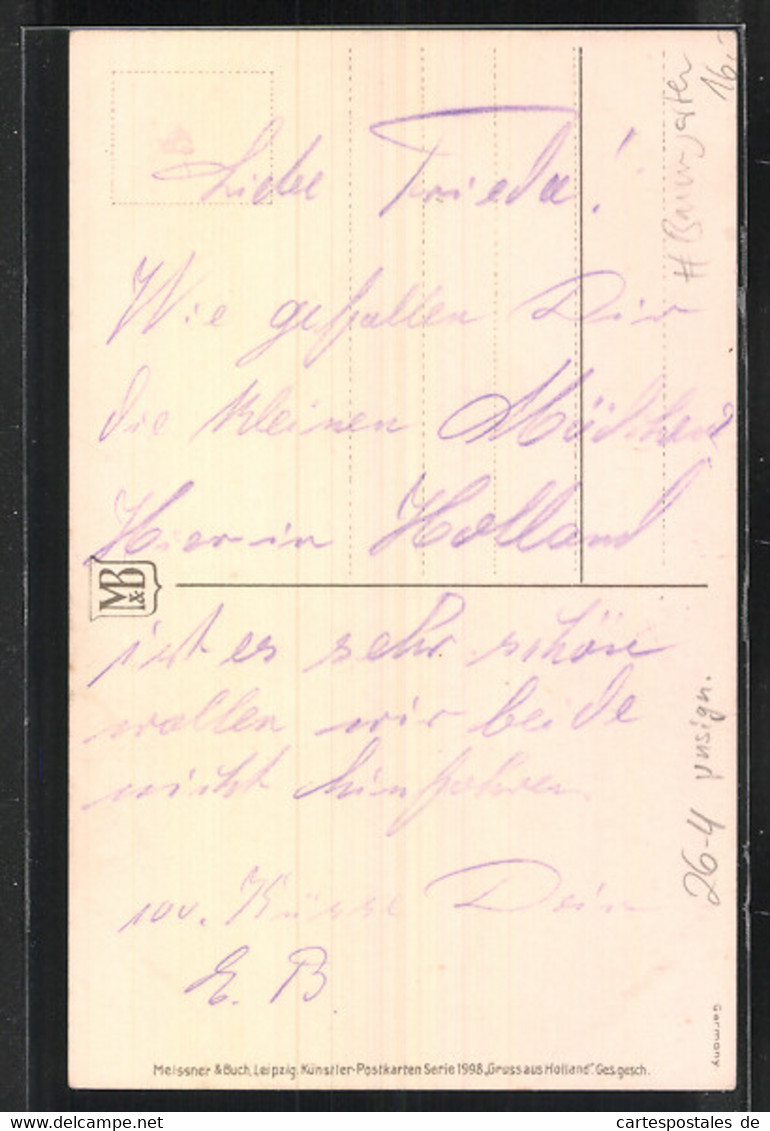 Liebe Frieda!
Wie gefallen Dir
die kleinen Mädchen
Hier in Holland
ist es sehr schön
wollen wir beide
nicht hinfahren
100. Küsse Dein
E. B.
M&B
H Baumgarten
16.
26-4 unsign.
Germany
Meissner & Buch, Leipzig. Künstler-Postkarten Serie 1998 „Gruss aus Holland". Ges. gesch.
www.cartespostales.de
cartespostales de